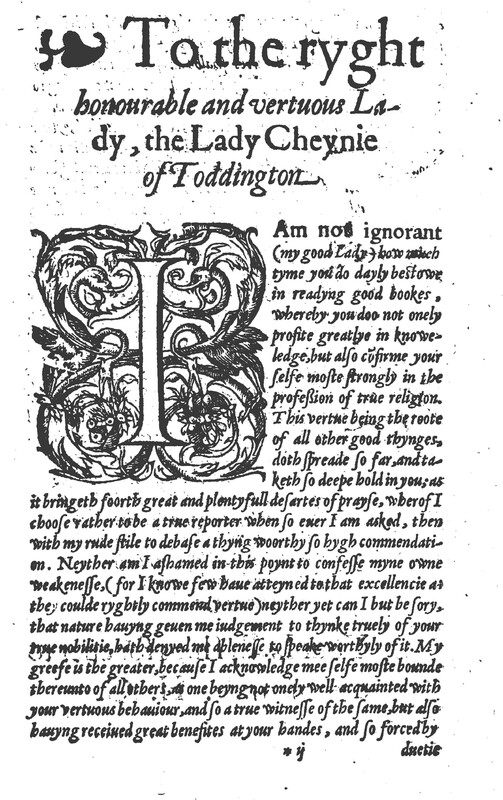 To the ryght
honourable and vertuous La-
dy, the Lady Cheynie
of Toddington
I Am not ignorant
(my good Lady) how much
tyme you do dayly bestowe
in readyng good bookes,
whereby you doo not onely
profite greatlye in knowe-
ledge, but also cõfirme your
selfe moste strongly in the
profession of true religion.
This vertue being the roote
of all other good thynges,
doth spreade so far, and ta-
keth so deepe hold in you; as
it bringeth foorth great and plentyfull desartes of prayse, wherof I
choose rather to be a true reporter when so euer I am asked, then
with my rude stile to debase a thyng woorthy so hygh commendati-
on. Neyther am I ashamed in this poynt to confesse myne owne
weakenesse, (for I knowe few haue atteyned to that excellencie as
they coulde ryghtly commend vertue) neyther yet can I but be sory,
that nature hauyng geuen me iudgement to thynke truely of your
true nobilitie, hath denyed me ablenesse to speake worthyly of it. My
greefe is the greater, because I acknowledge mee selfe moste bounde
thereunto of all others, as one beyng not onely well acquainted with
your vertuous behauiour, and so a true witnesse of the same, but also
hauyng receiued great benefites at your handes, and so forced by
* ij duetie